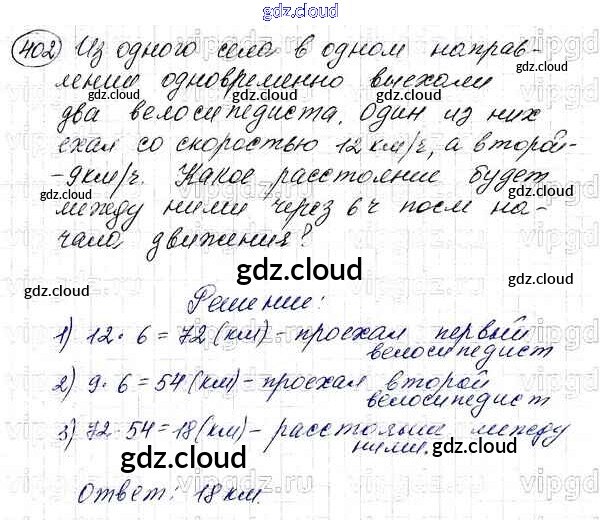 gdz.cloud
402 Из одного села в одном направ-
лении одновременно выехали
два велосипедиста. Один из них
ехал со скоростью 12 км/ч, а второй-
-9км/ч. Какое расстояние будет
между ними через 6 ч посл на-
чала движения?
gdz.cloud
gdz.cloud
gdz.cloud
gdz.cloud
gdz.cloud
gdz.cloud
gdz.cloud
Решение:
1) 12 · 6 = 72 (км) - проехал первый
велосипедист
gdz.cloud
gdz.cloud
2) 9 · 6 = 54 (км) - проехал второй
велосипедист
gdz.cloud
3) 72 - 54 = 18 (км) - расстояние между
ними.
gdz.cloud
gdz.cloud
Ответ: 18 км.